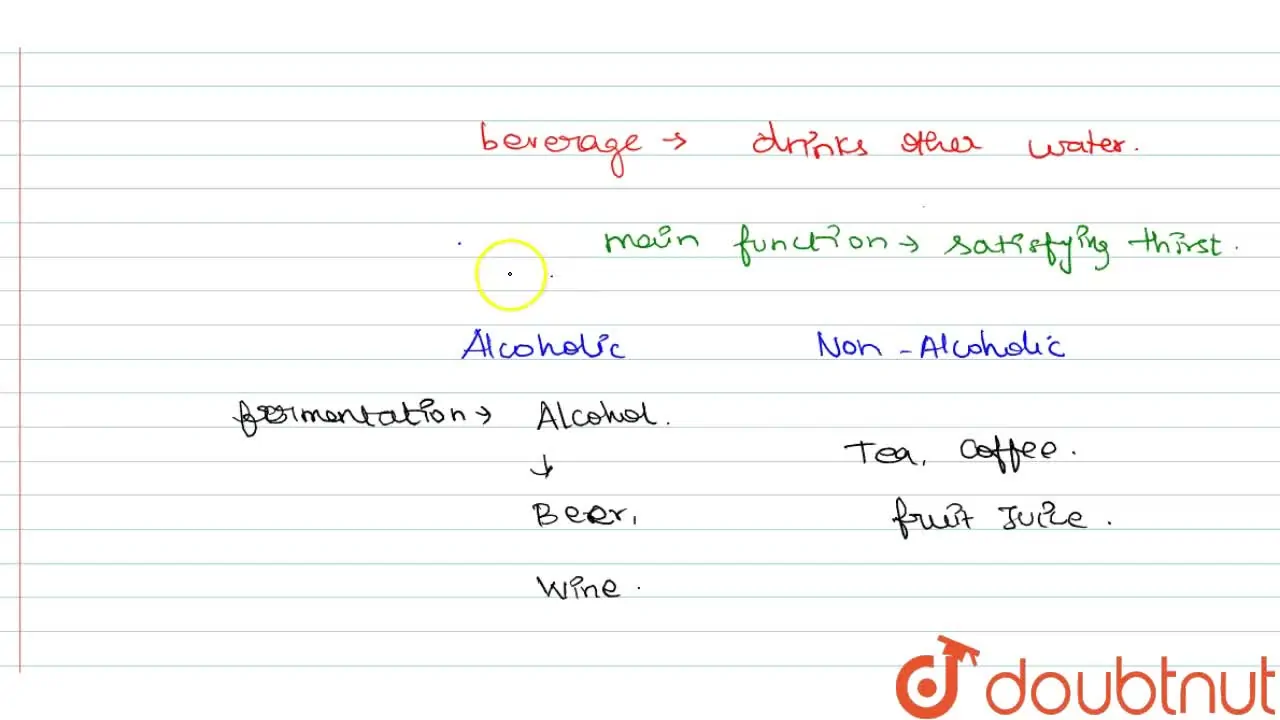 beverage → drinks other water.
main function → satisfying thirst.
Alcoholic Non-Alcoholic
fermentation → Alcohol.
↓
Tea, Coffee.
Beer,
fruit Juice.
Wine.
doubtnut